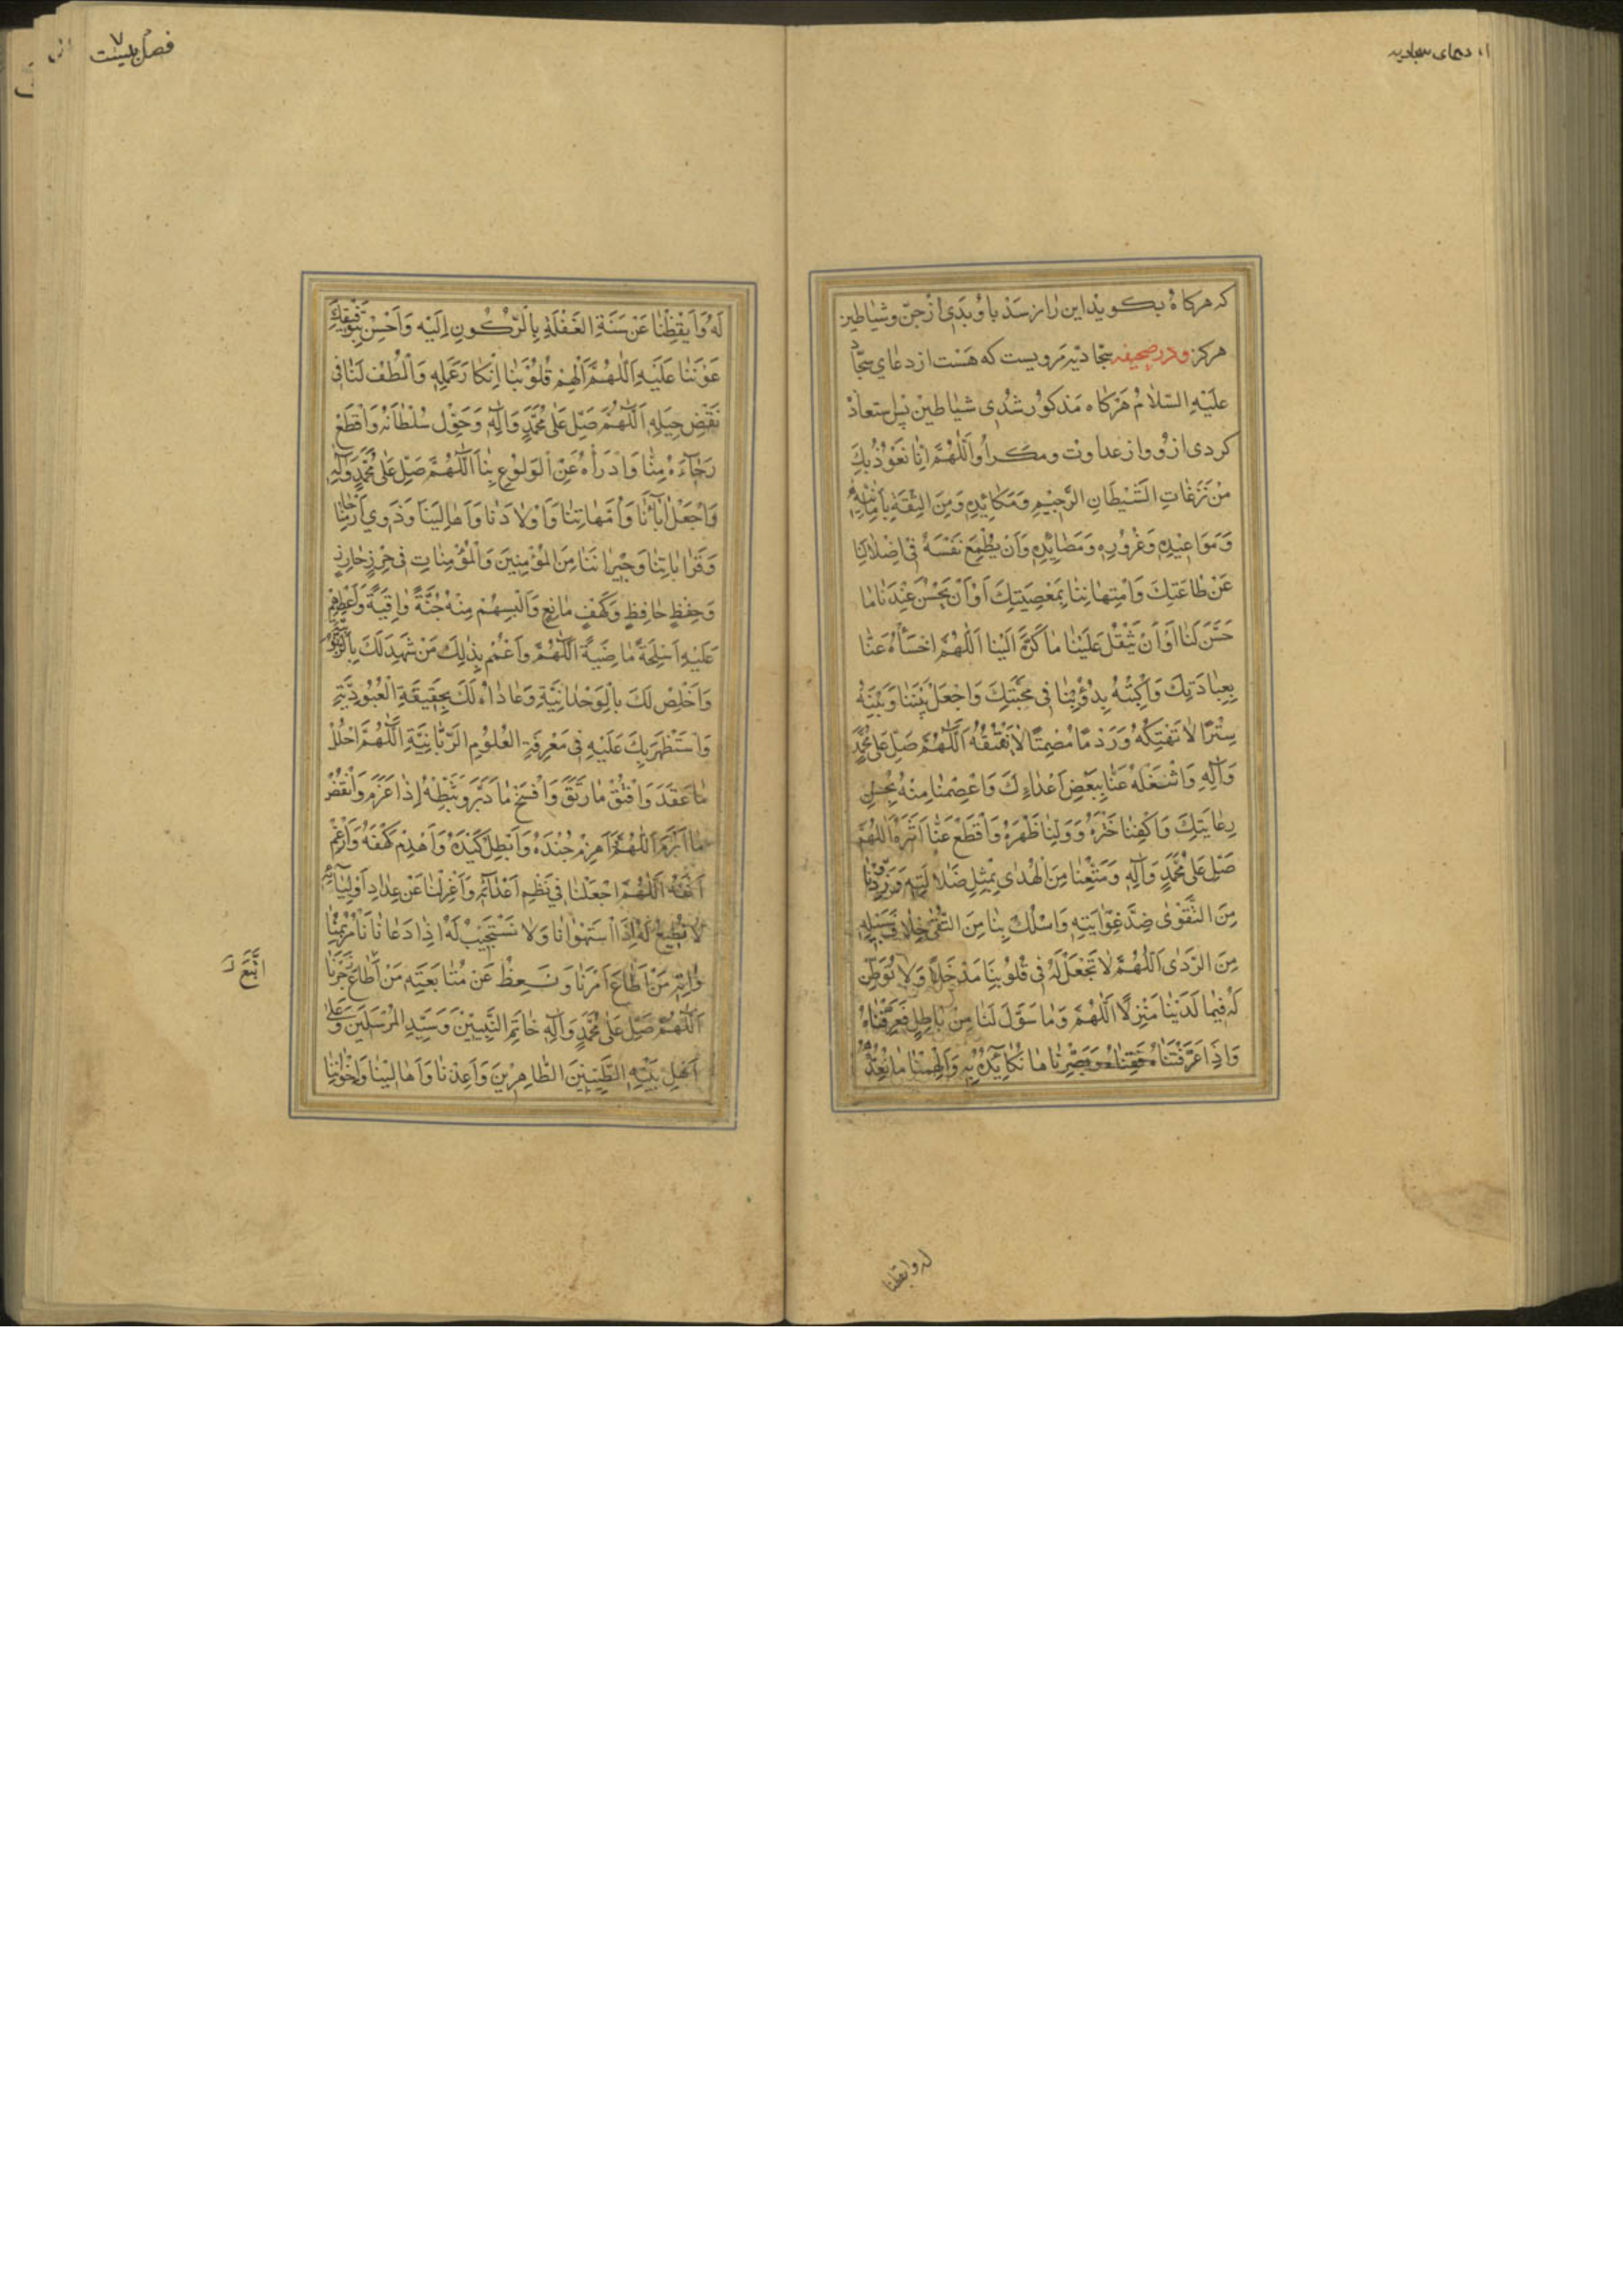 از دعای سجادیه
که هرکاه بکوید این را نرسد باو بدی از جن و شیاطین
هرکز ودر صحیفه سجادیه مرویست که هست از دعای سجّاد
علیه السّلام هرکاه مذکور شدی شیاطین پس استعاذ
کردی ازو و از عداوت و مکر او اَللّٰهُمَّ اِنّا نَعُوْذُ بِكَ
مِنْ نَزَغاتِ الشَّيْطانِ الرَّجيمِ وَمَكائِدِهِ وَمِنَ الثِّقَةِ بِاَمانِيِّهِ
وَمَواعِيْدِهِ وَغُرُوْرِهِ وَمَصائِدِهِ وَاَنْ يُطْمِعَ نَفْسَهُ فى اِضْلالِنا
عَنْ طاعَتِكَ وَامْتِهانِنا بِمَعْصِيَتِكَ اَوْ اَنْ يَحْسُنَ عِنْدَنا ما
حَسَّنَ لَنا اَوْ اَنْ يَثْقُلَ عَلَيْنا ما كَرَّهَ اِلَيْنا اَللّٰهُمَّ اخْسَأْهُ عَنّا
بِعِبادَتِكَ وَاكْبِتْهُ بِدُؤُبِنا فى مَحَبَّتِكَ وَاجْعَلْ بَيْنَنا وَبَيْنَهُ
سِتْرًا لا تَهْتِكُهُ وَرَدْمًا مُصْمِتًا لا تَفْتُقُهُ اَللّٰهُمَّ صَلِّ عَلى مُحَمَّدٍ
وَآلِهِ وَاشْغَلْهُ عَنّا بِبَعْضِ اَعْداءِكَ وَاعْصِمْنا مِنْهُ بِحُسْنِ
رِعايَتِكَ وَاكْفِنا خَتْرَهُ وَوَلِّنا ظَهْرَهُ وَاقْطَعْ عَنّا اَثَرَهُ اَللّٰهُمَّ
صَلِّ عَلى مُحَمَّدٍ وَآلِهِ وَمَتِّعْنا مِنَ الْهُدى بِمِثْلِ ضَلالَتِهِ وَزَوِّدْنا
مِنَ التَّقْوى ضِدَّ غَوايَتِهِ وَاسْلُكْ بِنا مِنَ التُّقى خِلافَ سَبيلِهِ
مِنَ الرَّدى اَللّٰهُمَّ لا تَجْعَلْ لَهُ فى قُلُوبِنا مَدْخَلًا وَلا تُوَطِّنَنَّ
لَهُ فيما لَدَيْنا مَنْزِلًا اَللّٰهُمَّ وَما سَوَّلَ لَنا مِنْ باطِلٍ فَعَرِّفْناهُ
وَاِذا عَرَّفْتَناهُ فَقِناهُ وَبَصِّرْنا ما نُكائِدُهُ بِهِ وَاَلْهِمْنا ما نُعِدُّهُ
له وایقظنا
فصل بیست
٧
لَهُ وَاَيْقِظْنا عَنْ سِنَةِ الْغَفْلَةِ بِالرُّكُونِ اِلَيْهِ وَاَحْسِنْ بِتَوْفيقِكَ
عَوْنَنا عَلَيْهِ اَللّٰهُمَّ اَلْهِمْ قُلُوْبَنا اِنْكارَ عَمَلِهِ وَالْطُفْ لَنا فى
نَقْضِ حِيَلِهِ اَللّٰهُمَّ صَلِّ عَلى مُحَمَّدٍ وَآلِهِ وَحَوِّلْ سُلْطانَهُ وَاقْطَعْ
رَجآءَهُ مِنّا وَادْرَأْهُ عَنِ الْوَلُوْعِ بِنا اَللّٰهُمَّ صَلِّ عَلى مُحَمَّدٍ وَآلِهِ
وَاجْعَلْ آبآئَنا وَاُمَّهاتِنا وَاَوْلادَنا وَاَهالِيَنا وَذَوي اَرْحامِنا
وَقَراباتِنا وَجيرانَنا مِنَ الْمُؤْمِنينَ وَالْمُؤْمِناتِ فى حِرْزٍ حارِزٍ
وَحِفْظٍ حافِظٍ وَكَهْفٍ مانِعٍ وَاَلْبِسْهُمْ مِنْهُ جُنَّةً واقِيَةً وَاَعْطِهِمْ
عَلَيْهِ اَسْلِحَةً ماضِيَةً اَللّٰهُمَّ وَاعْمُمْ بِذٰلِكَ مَنْ شَهِدَ لَكَ بِالرُّبُوبِيَّةِ
وَاَخْلَصَ لَكَ بِالْوَحْدانِيَّةِ وَعاداهُ لَكَ بِحَقيقَةِ الْعُبُودِيَّةِ
وَاسْتَظْهَرَ بِكَ عَلَيْهِ فى مَعْرِفَةِ الْعُلُوْمِ الرَّبّانِيَّةِ اَللّٰهُمَّ احْلُلْ
ما عَقَدَ وَافْتُقْ ما رَتَقَ وَافْسَخْ ما دَبَّرَ وَثَبِّطْهُ اِذا عَزَمَ وَانْقُضْ
ما اَبْرَمَ اَللّٰهُمَّ وَاهْزِمْ جُنْدَهُ وَاَبْطِلْ كَيْدَهُ وَاهْدِمْ كَهْفَهُ وَاَرْغِمْ
اَنْفَهُ اَللّٰهُمَّ اجْعَلْنا فى نَظْمِ اَعْدائِهِ وَاعْزِلْنا عَنْ عِدادِ اَوْلِيائِهِ
لا نُطيعُ لَهُ اِذَا اسْتَهْوانا وَلا نَسْتَجيبُ لَهُ اِذا دَعانا نَأْمُرُ بِمُناواتِهِ
مَنْ اَطاعَ اَمْرَنا وَنَعِظُ عَنْ مُتابَعَتِهِ مَنْ اَطاعَ زَجْرَنا
اتَّبَعَ
اَللّٰهُمَّ صَلِّ عَلى مُحَمَّدٍ وَآلِهِ خاتَمِ النَّبِيّينَ وَسَيِّدِ الْمُرْسَلينَ وَعَلى
اَهْلِ بَيْتِهِ الطَّيِّبينَ الطّاهِرينَ وَاَعِذْنا وَاَهالِيَنا وَاِخْوانَنا